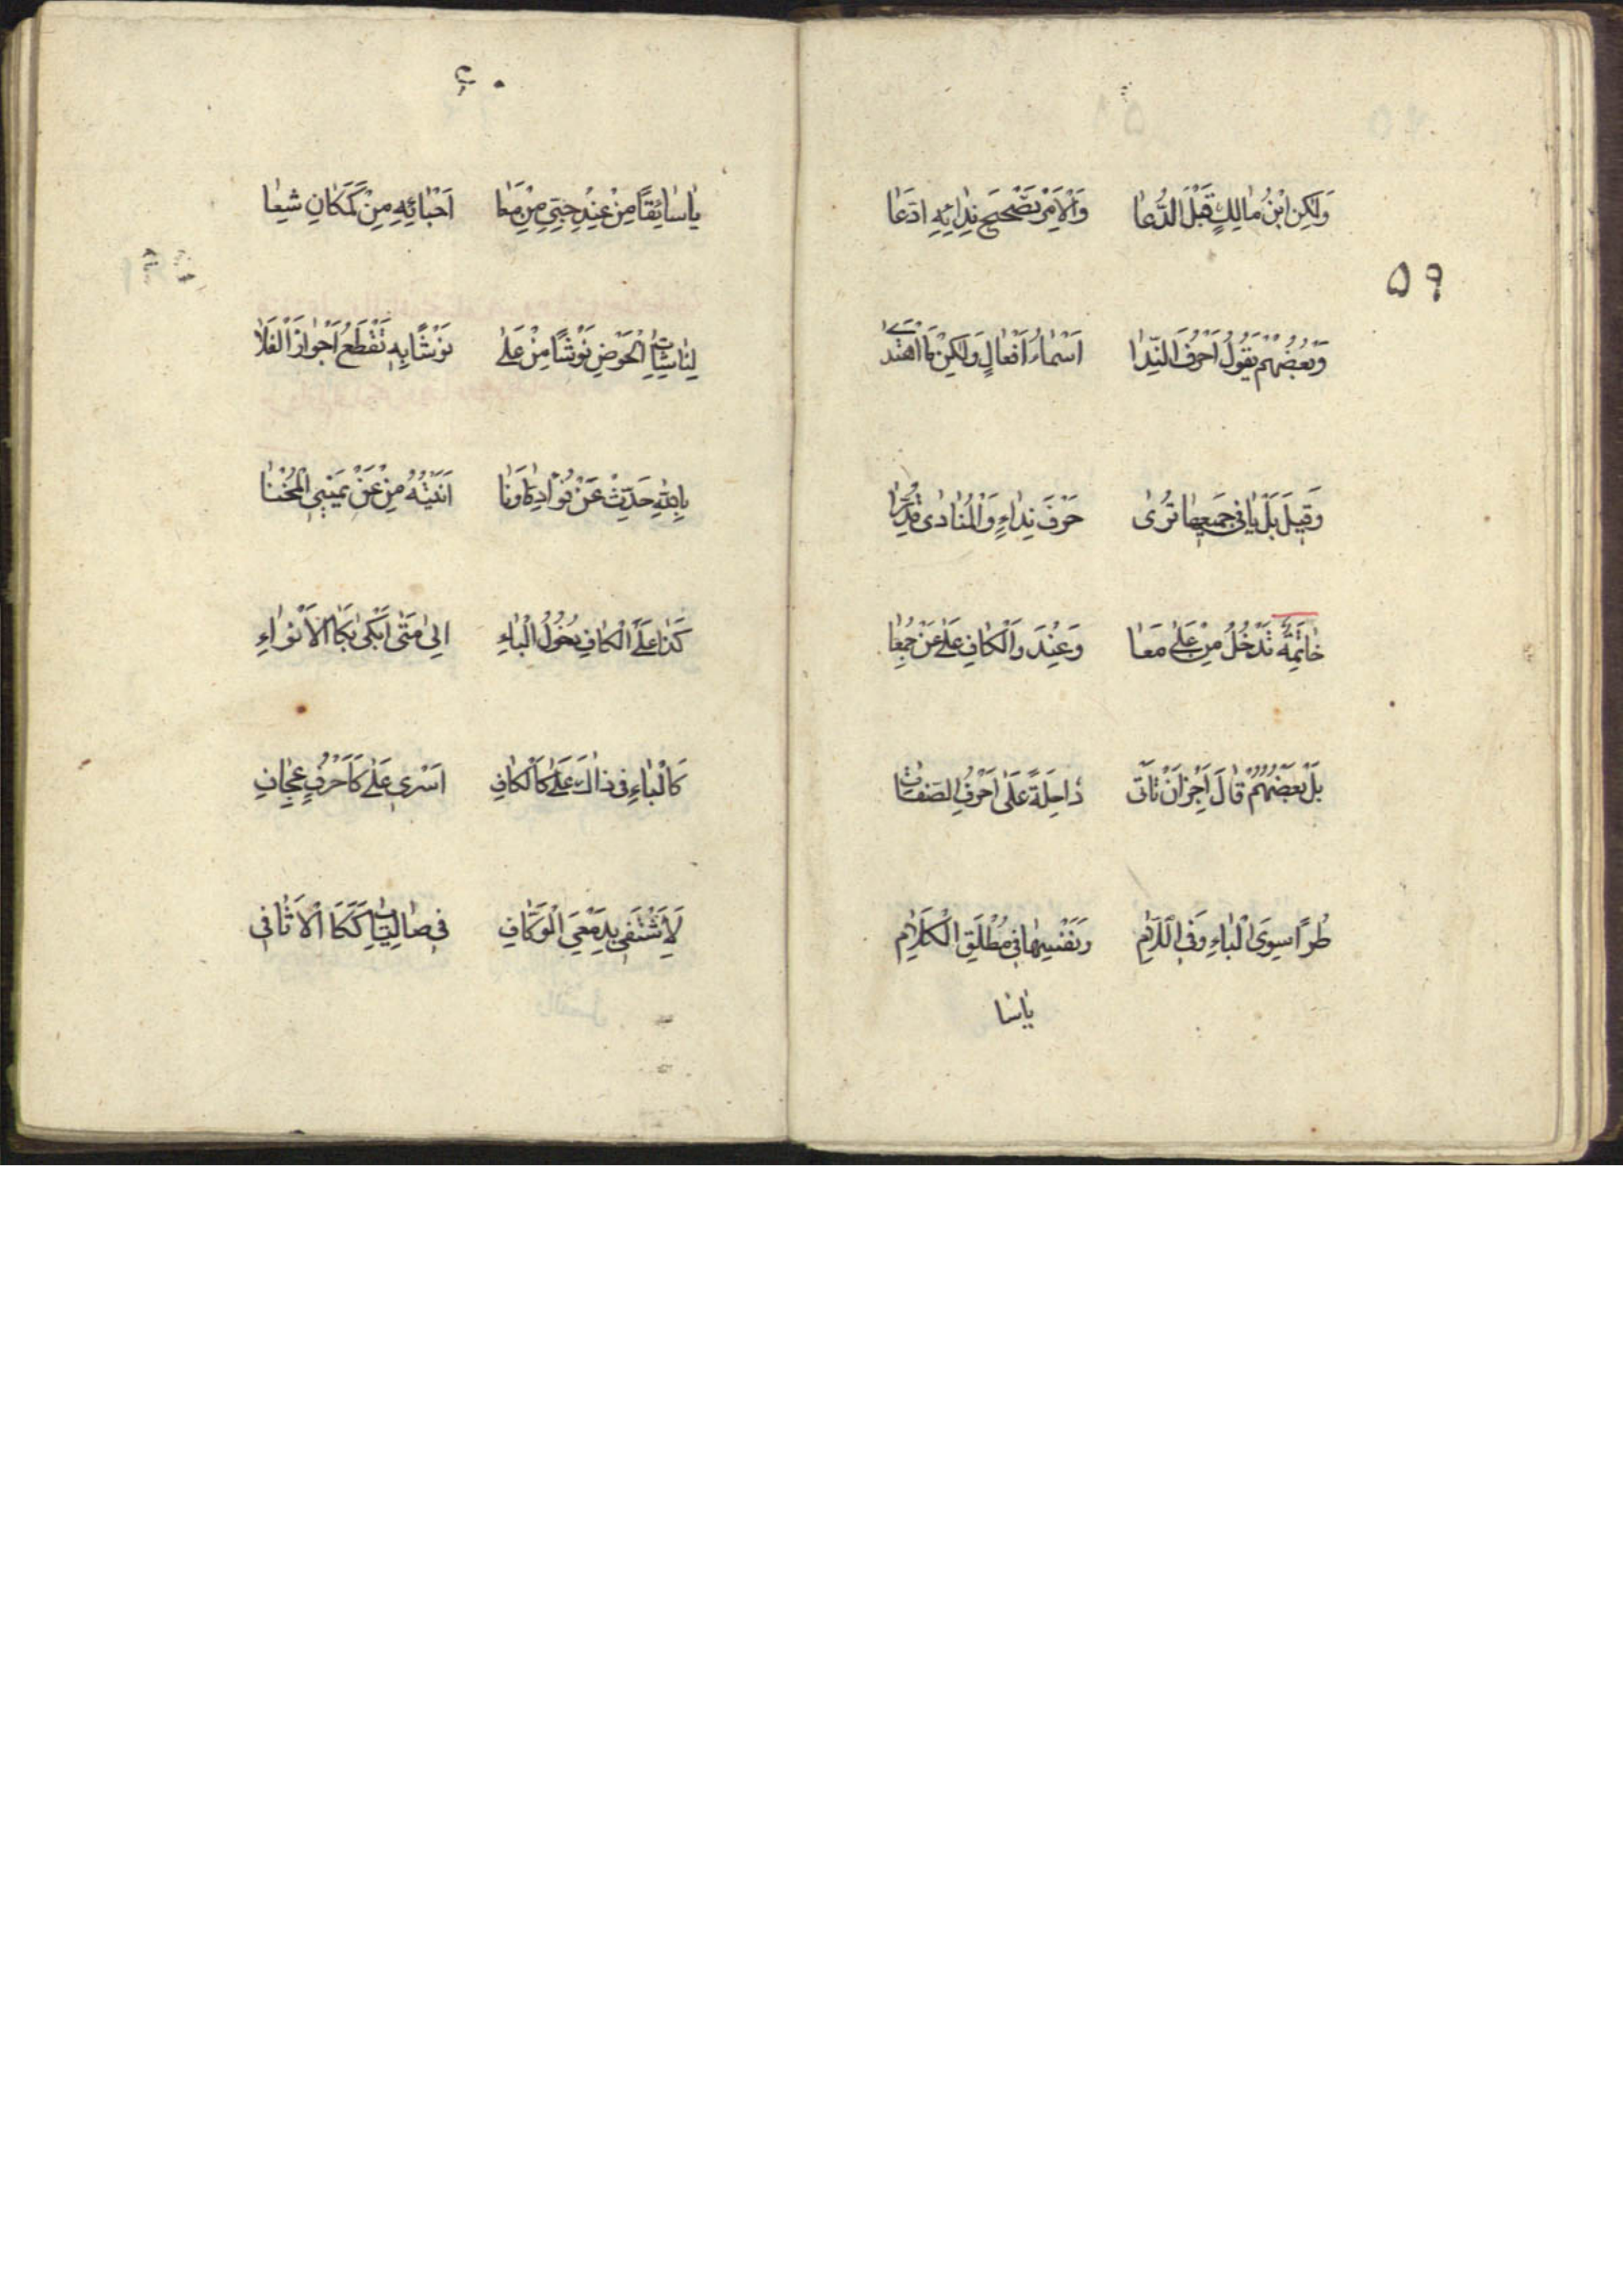 وَلَكِنِ ابْنُ مٰالِكٍ قَبْلَ الدُّعٰا وَالْاَمْرِ تَصْحِيحَ نِدٰائِهِ ادَّعٰا
٥٩
وَبَعْضُهُمْ يَقُولُ اَحْرُفُ النِّدٰا اَسْمٰاءُ اَفْعٰالٍ وَلٰكِنْ مَا اهْتَدٰى
وَقِيلَ بَلْ يٰا فِى جَمِيعِهٰا تُرٰى حَرْفَ نِدٰاءٍ وَالْمُنٰادٰى قُدِّرٰا
خٰاتِمَةٌ تَدْخُلُ مِنْ عَلٰى مَعَا وَعِنْدَ وَالْكٰافِ عَلٰى عَنْ جُمِعٰا
بَلْ بَعْضُهُمْ قٰالَ اَجِزْ اَنْ تَأتى دٰاخِلَةً عَلٰى اَحْرُفِ الصِّفٰاتِ
طُرًّا سِوَى الْبٰاءِ وَفِى الّلٰامِ وَنَفْسِهٰا فِى مُطْلَقِ الْكَلٰامِ
يٰاسٰا
٦٠
يٰاسٰائِقًا مِنْ عِنْدِ حِبّى مِنْ مَعٰا اَحْبٰائِهِ مِنْ كَمَكٰانٍ شِعٰا
الْحَوْضِ نَوْشًا مِنْ عَلٰى نَوْشًا بِهِ تَقْطَعُ اَجْوٰازَ الْفَلٰا
بِاللّٰهِ حَدِّثْ عَنْ مِنْ عَنْ يَمِينِ الْمُنْحَنٰا
كَذٰا عَلَى الْكٰافِ دُخُولُ الْبٰاءِ اِلٰى مَتٰى اَبْكى بِكَا الْاَنْوٰاءِ
كَالْبٰاءِ فى ذٰاكَ عَلٰى كَالْكٰافِ اَسْرى عَلٰى كَاَحْرُفٍ عِجٰافِ
لَا َشْتَفى بِدَمْعِىَ الْوَكّٰافِ فى صٰالِيٰاتٍ كَكَا الْاَثٰافى